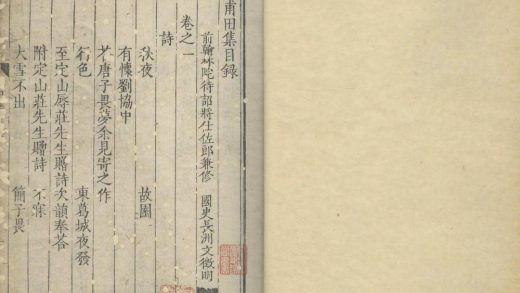 甫田集目錄
前翰林院待詔將仕佐郎兼修　國史長洲文徵明
卷之一
詩
秋夜　故園
有懷劉協中
答唐子畏夢余見寄之作
色　東葛城夜發
至定山辱莊先生贈詩次韻奉答
附定山莊先生贈詩　不寐
大雪不出　簡子畏